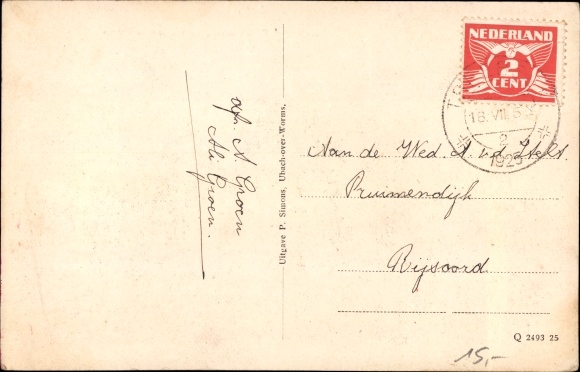 NEDERLAND
2
CENT
18.VIII.3
2
1925
Afz. A. Groen
Ali Groen.
Uitgave P. Simons, Ubach-over-Worms.
Aan de Wed. A. v.d.
Pruimendijk
Rijsoord
Q 2493 25
15,-